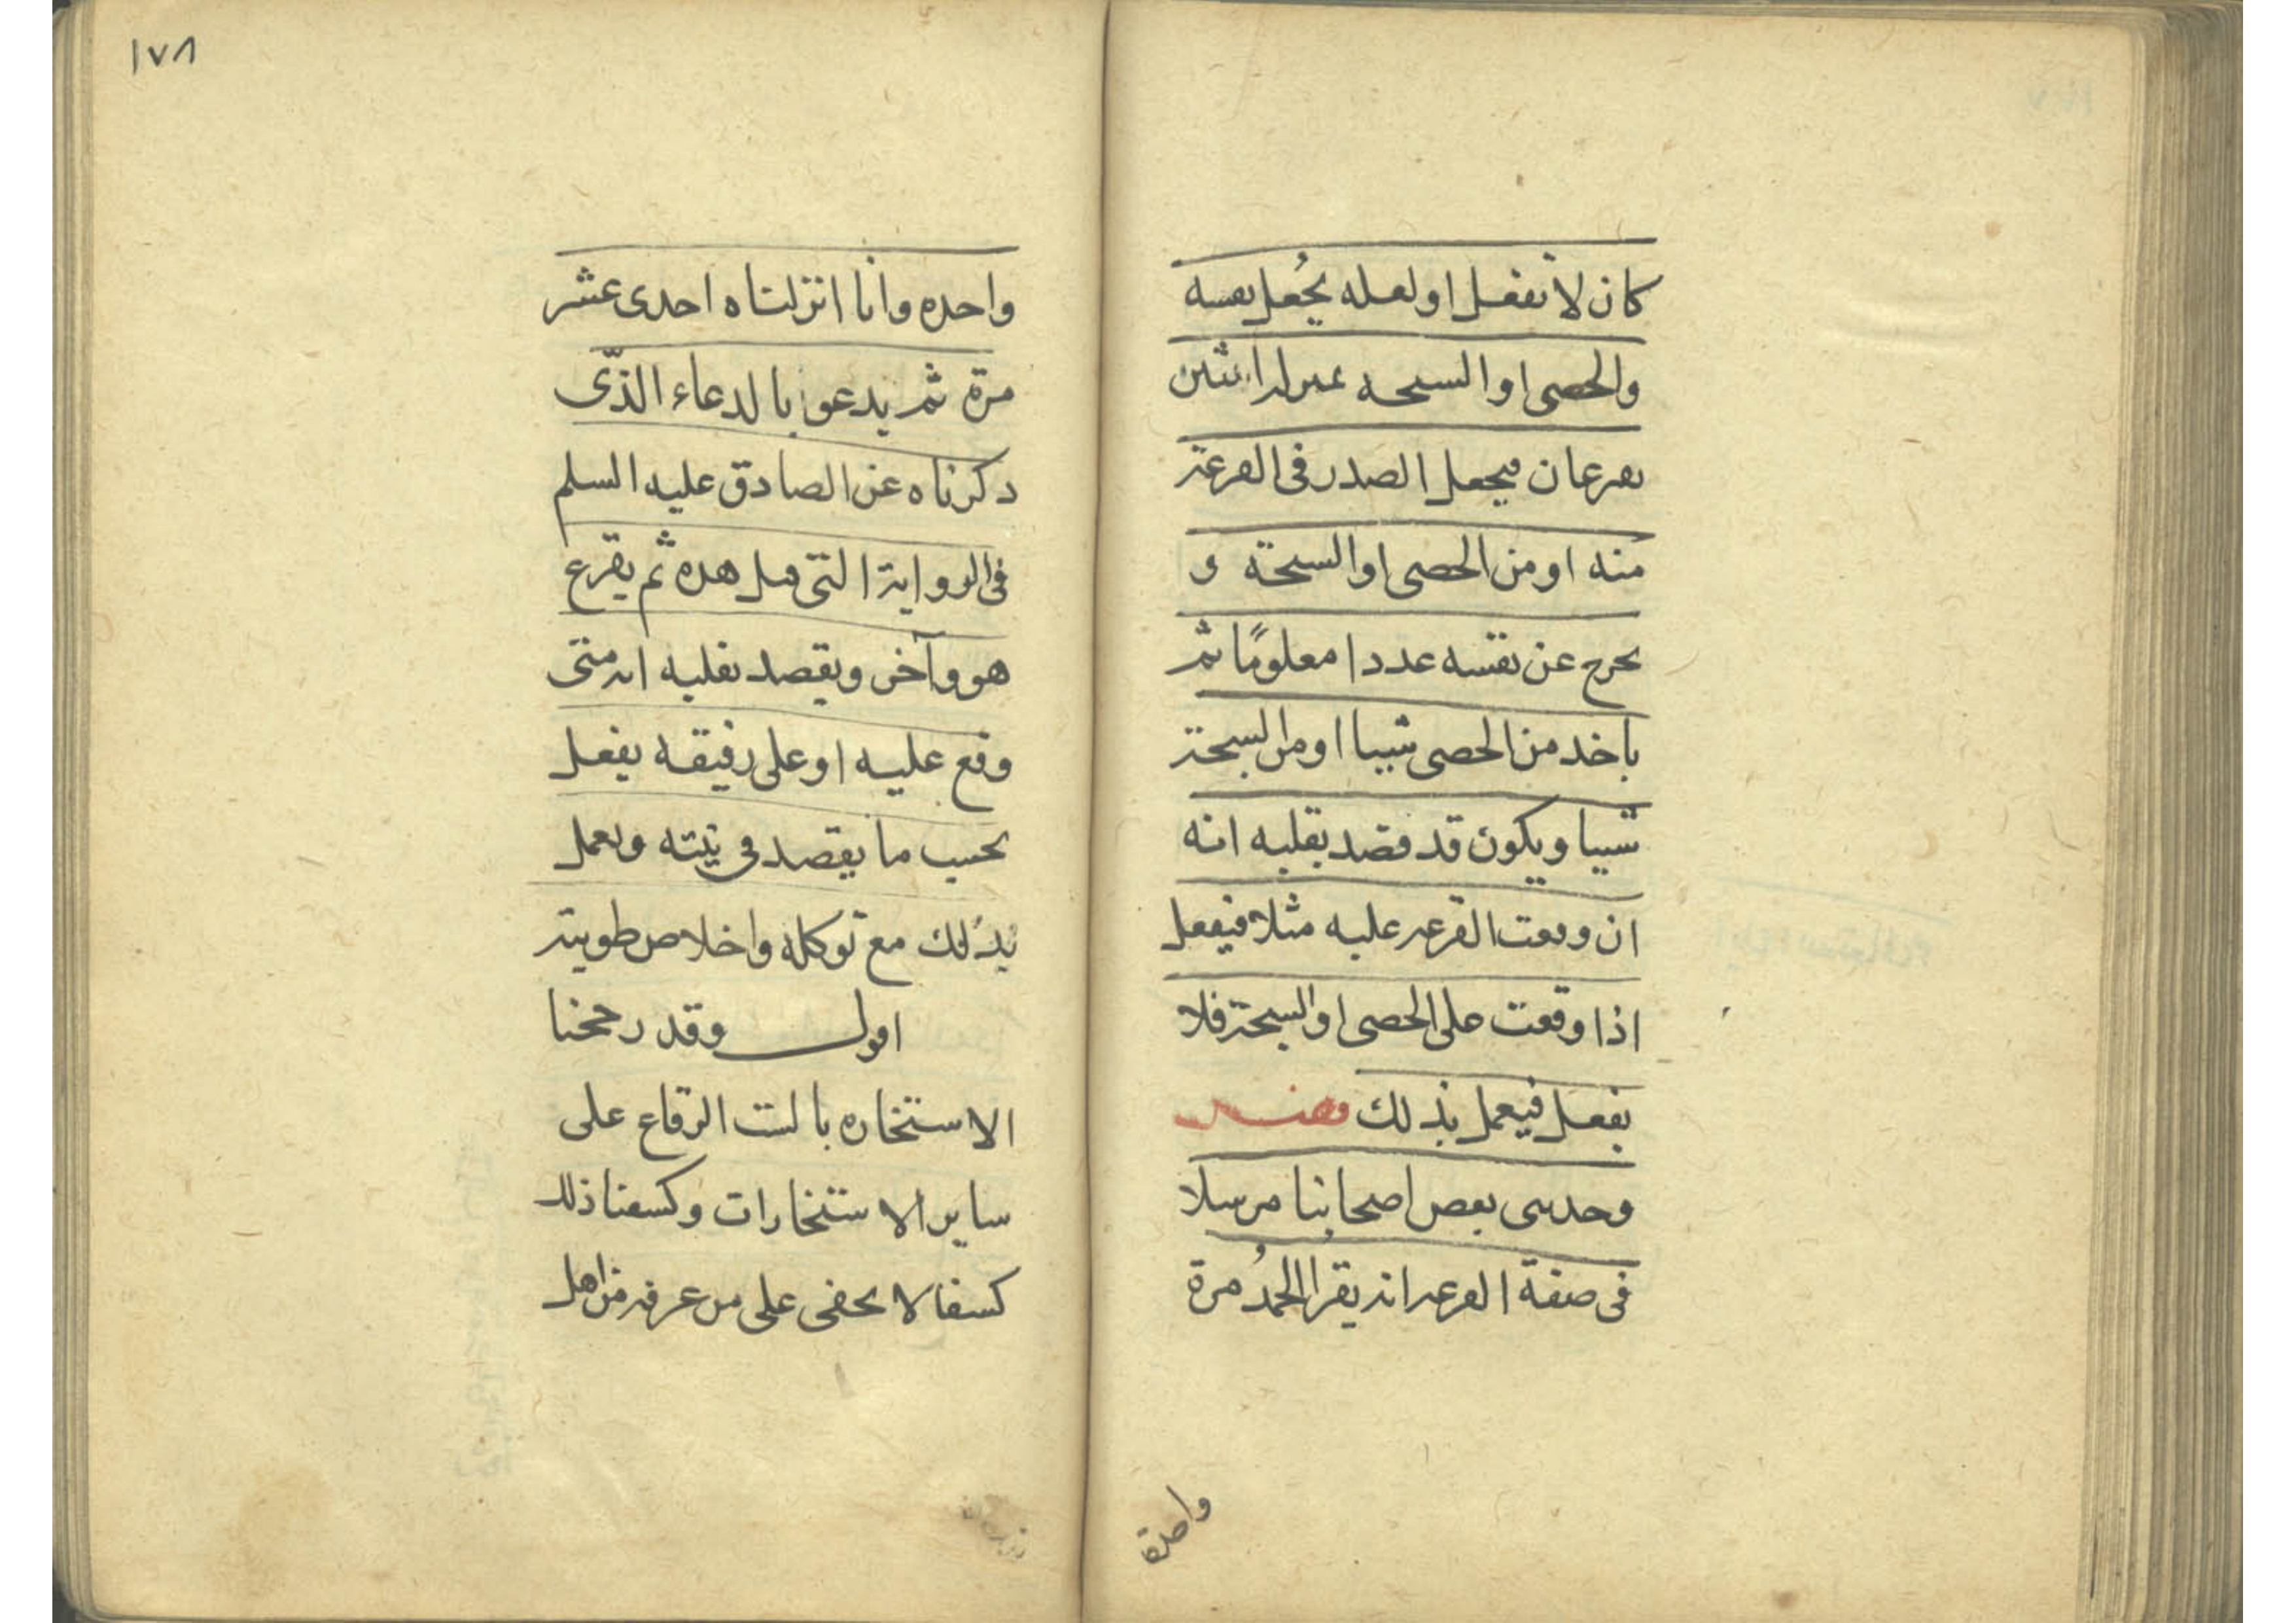 كان لا تفعل او لعله يجعل نفسه
والحصى او السبحه بمنزلة اثنين
يقرعان فيجعل الصدر فى القرعة
منه او من الحصى او السبحة و
يخرج عن نفسه عددا معلومًا ثم
ياخذ من الحصى شييا او من السبحة
شييا ويكون قد قصد بقلبه انه
ان وقعت القرعه عليه مثلا فيفعل
اذا وقعت على الحصى او السبحة فلا
يفعل فيعمل بذلك فصل
وحدثنى بعض اصحابنا مرسلا
فى صفة القرعه انه يقرا الحمدُ مرة
واحدة
١٧٨
واحده وانا انزلناه احدى عشر
مرة ثم يدعو بالدعاء الذّى
ذكرناه عن الصادق عليه السلم
فى الرواية التى قبل هذه ثم يقرع
هو وآخر ويقصد بقلبه انه متى
وقع عليه او على رفيقه يفعل
بحسب ما يقصد فى نيته ويعمل
بذلك مع توكله واخلاص طويته
اقول وقد رجحنا
الاستخاره بالست الرقاع على
ساير الاستخارات وكشفنا ذلك
كشفا لا يخفى على من عرفه من اهل